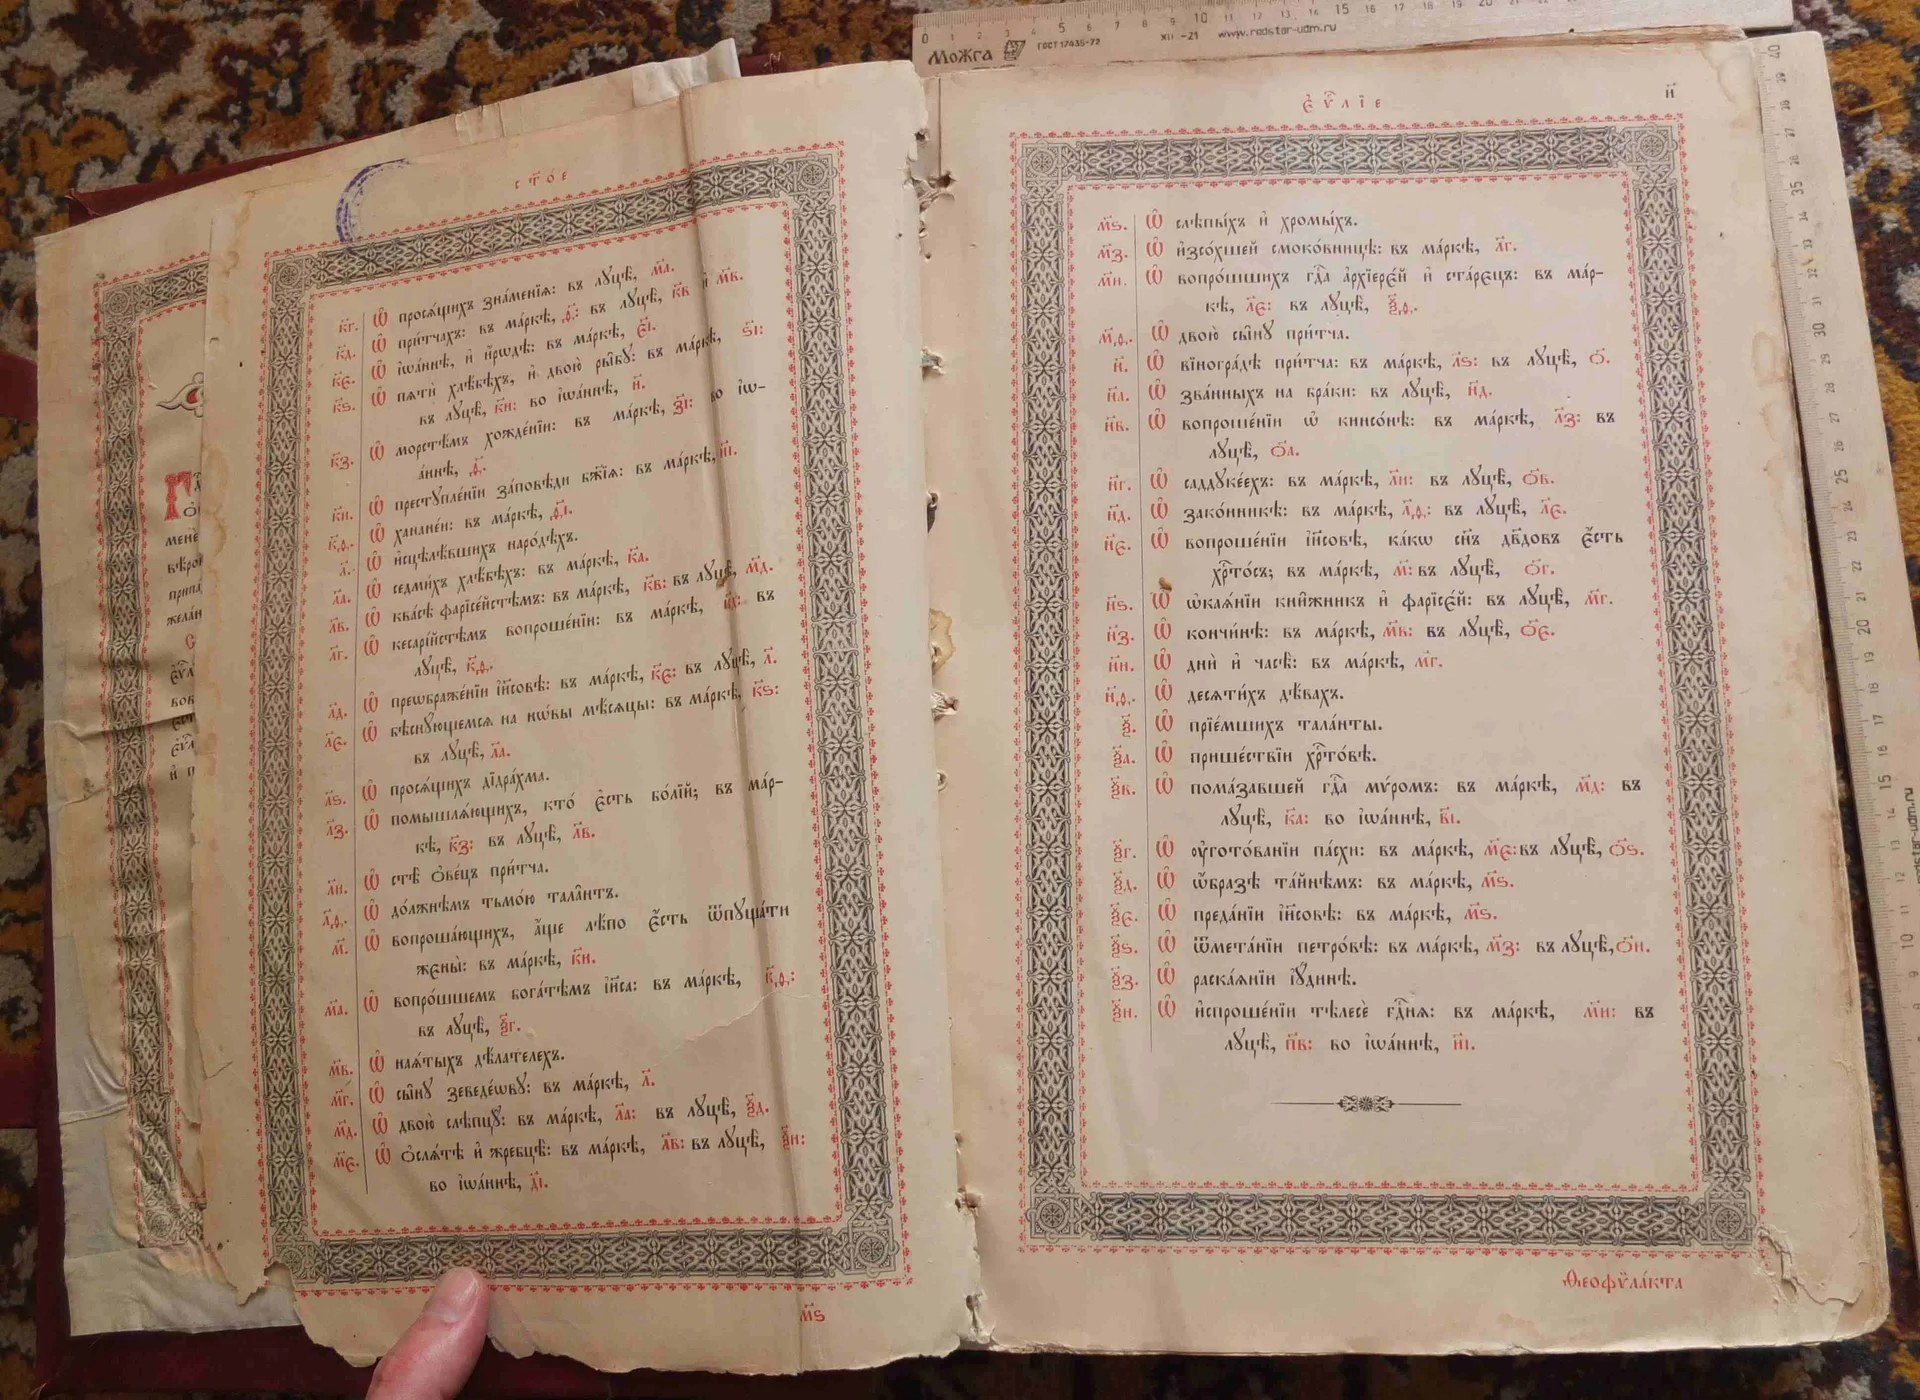 МоЖга ГОСТ 17435-72 XII -21 www.redstar-udm.ru
с т҃о́ е
к҃г. Ѡ҆ прося́щихъ зна́менїѧ: въ лꙋцѣ̀, м҃а.
к҃д. Ѡ҆ при́тчахъ: въ ма́ркѣ, ѳ҃: въ лꙋцѣ̀, к҃в и҆ м҃в.
к҃є. Ѡ҆ і҆ѡа́ннѣ, и҆ и҆́рѡдѣ: въ ма́ркѣ, є҃і.
к҃ѕ. Ѡ҆ пѧтѝ хлѣ́бѣхъ, и҆ двою̀ ры̑бꙋ: въ ма́ркѣ, ѕ҃і:
въ лꙋцѣ̀, к҃и: во і҆ѡа́ннѣ, и҃.
к҃з. Ѡ҆ морстѣ́мъ хожде́нїи: въ ма́ркѣ, з҃і: во і҆ѡ-
а́ннѣ, ѳ҃.
к҃и. Ѡ҆ престꙋпле́нїи за́повѣди бж҃їѧ: въ ма́ркѣ, и҃і.
к҃ѳ. Ѡ҆ ханане́и: въ ма́ркѣ, ѳ҃і.
л҃. Ѡ҆ и҆сцѣлѣ́вшихъ наро́дѣхъ.
л҃а. Ѡ҆ седми́хъ хлѣ́бѣхъ: въ ма́ркѣ, к҃а.
л҃в. Ѡ҆ ква́сѣ фарїсе́йстѣмъ: въ ма́ркѣ, к҃в: въ лꙋцѣ̀, м҃д.
л҃г. Ѡ҆ кесарі́йстѣмъ вопроше́нїи: въ ма́ркѣ, к҃д: въ
лꙋцѣ̀, к҃ѳ.
л҃д. Ѡ҆ преѡбраже́нїи і҆и҃совѣ: въ ма́ркѣ, к҃є: въ лꙋцѣ̀, л҃.
л҃є. Ѡ҆ бѣснꙋ́ющемсѧ на нѡ́вы мѣ́сѧцы: въ ма́ркѣ, к҃ѕ:
въ лꙋцѣ̀, л҃а.
л҃ѕ. Ѡ҆ прося́щихъ дїдра́хма.
л҃з. Ѡ҆ помышлѧ́ющихъ, кто́ є҆́сть бо́лїй; въ ма́р-
кѣ, к҃з: въ лꙋцѣ̀, л҃в.
л҃и. Ѡ҆ стѣ̀ ѻ҆ве́цъ при́тча.
л҃ѳ. Ѡ҆ до́лжнѣмъ тьмо́ю тала̑нтъ.
м҃. Ѡ҆ вопроша́ющихъ, а҆́ще лѣ́по є҆́сть ѿпꙋща́ти
жєны̀: въ ма́ркѣ, к҃и.
м҃а. Ѡ҆ вопро́шшемъ бога́тѣмъ і҆и҃са: въ ма́ркѣ, к҃ѳ:
въ лꙋцѣ̀, ѯ҃г.
м҃в. Ѡ҆ наѧ́тыхъ дѣ́лателехъ.
м҃г. Ѡ҆ сы̑нꙋ зеведе́ѡвꙋ: въ ма́ркѣ, л҃.
м҃д. Ѡ҆ двою̀ слѣпцꙋ̀: въ ма́ркѣ, л҃а: въ лꙋцѣ̀, ѯ҃д.
м҃є. Ѡ҆ ѻ҆слѧ́тѣ и҆ жребцѣ̀: въ ма́ркѣ, л҃в: въ лꙋцѣ̀, ѯ҃и:
во і҆ѡа́ннѣ, д҃і.
м҃ѕ
є҆ ѵ҃ л ї е
и҃
м҃ѕ. Ѡ҆ слѣпы́хъ и҆ хромы́хъ.
м҃з. Ѡ҆ и҆зсо́хшей смоко́вницѣ: въ ма́ркѣ, л҃г.
м҃и. Ѡ҆ вопро́шшихъ гд҇а а҆рхїере́й и҆ ста́рєцъ: въ ма́р-
кѣ, л҃є: въ лꙋцѣ̀, ѯ҃ѳ.
м҃ѳ. Ѡ҆ двою̀ сы̑нꙋ при́тча.
н҃. Ѡ҆ вїногра́дѣ при́тча: въ ма́ркѣ, л҃ѕ: въ лꙋцѣ̀, ѻ҃.
н҃а. Ѡ҆ зва́нныхъ на бра́ки: въ лꙋцѣ̀, н҃д.
н҃в. Ѡ҆ вопроше́нїи ѡ҆ кинсо́нѣ: въ ма́ркѣ, л҃з: въ
лꙋцѣ̀, ѻ҃а.
н҃г. Ѡ҆ саддꙋке́ехъ: въ ма́ркѣ, л҃и: въ лꙋцѣ̀, ѻ҃в.
н҃д. Ѡ҆ зако́нникѣ: въ ма́ркѣ, л҃ѳ: въ лꙋцѣ̀, л҃є.
н҃є. Ѡ҆ вопроше́нїи і҆и҃совѣ, ка́кѡ сн҃ъ дв҃довъ є҆́сть
хрⷭ҇то́съ; въ ма́ркѣ, м҃: въ лꙋцѣ̀, ѻ҃г.
н҃ѕ. Ѡ҆ ѡ҆каѧ́нїи кни̑жникъ и҆ фарїсє́й: въ лꙋцѣ̀, м҃г.
н҃з. Ѡ҆ кончи́нѣ: въ ма́ркѣ, м҃в: въ лꙋцѣ̀, ѻ҃є.
н҃и. Ѡ҆ днѝ и҆ часѣ̀: въ ма́ркѣ, м҃г.
н҃ѳ. Ѡ҆ десѧти́хъ дѣ́вахъ.
ѯ҃. Ѡ҆ прїе́мшихъ тала̑нты.
ѯ҃а. Ѡ҆ прише́ствїи хрⷭ҇то́вѣ.
ѯ҃в. Ѡ҆ пома́завшей гд҇а мѵ́ромъ: въ ма́ркѣ, м҃д: въ
лꙋцѣ̀, к҃а: во і҆ѡа́ннѣ, в҃і.
ѯ҃г. Ѡ҆ ᲂу҆гото́ванїи па́схи: въ ма́ркѣ, м҃є: въ лꙋцѣ̀, ѻ҃ѕ.
ѯ҃д. Ѡ҆ ѡ҆́бразѣ та́йнѣмъ: въ ма́ркѣ, м҃ѕ.
ѯ҃є. Ѡ҆ преда́нїи і҆и҃совѣ: въ ма́ркѣ, м҃ѕ.
ѯ҃ѕ. Ѡ҆ ѿмета́нїи петро́вѣ: въ ма́ркѣ, м҃з: въ лꙋцѣ̀, ѻ҃и.
ѯ҃з. Ѡ҆ раска́ѧнїи і҆ꙋ́динѣ.
ѯ҃и. Ѡ҆ и҆спроше́нїи тѣлесѐ гдⷭ҇нѧ: въ ма́ркѣ, м҃и: въ
лꙋцѣ̀, п҃в: во і҆ѡа́ннѣ, и҃і.
Ѳеофѷла́кта